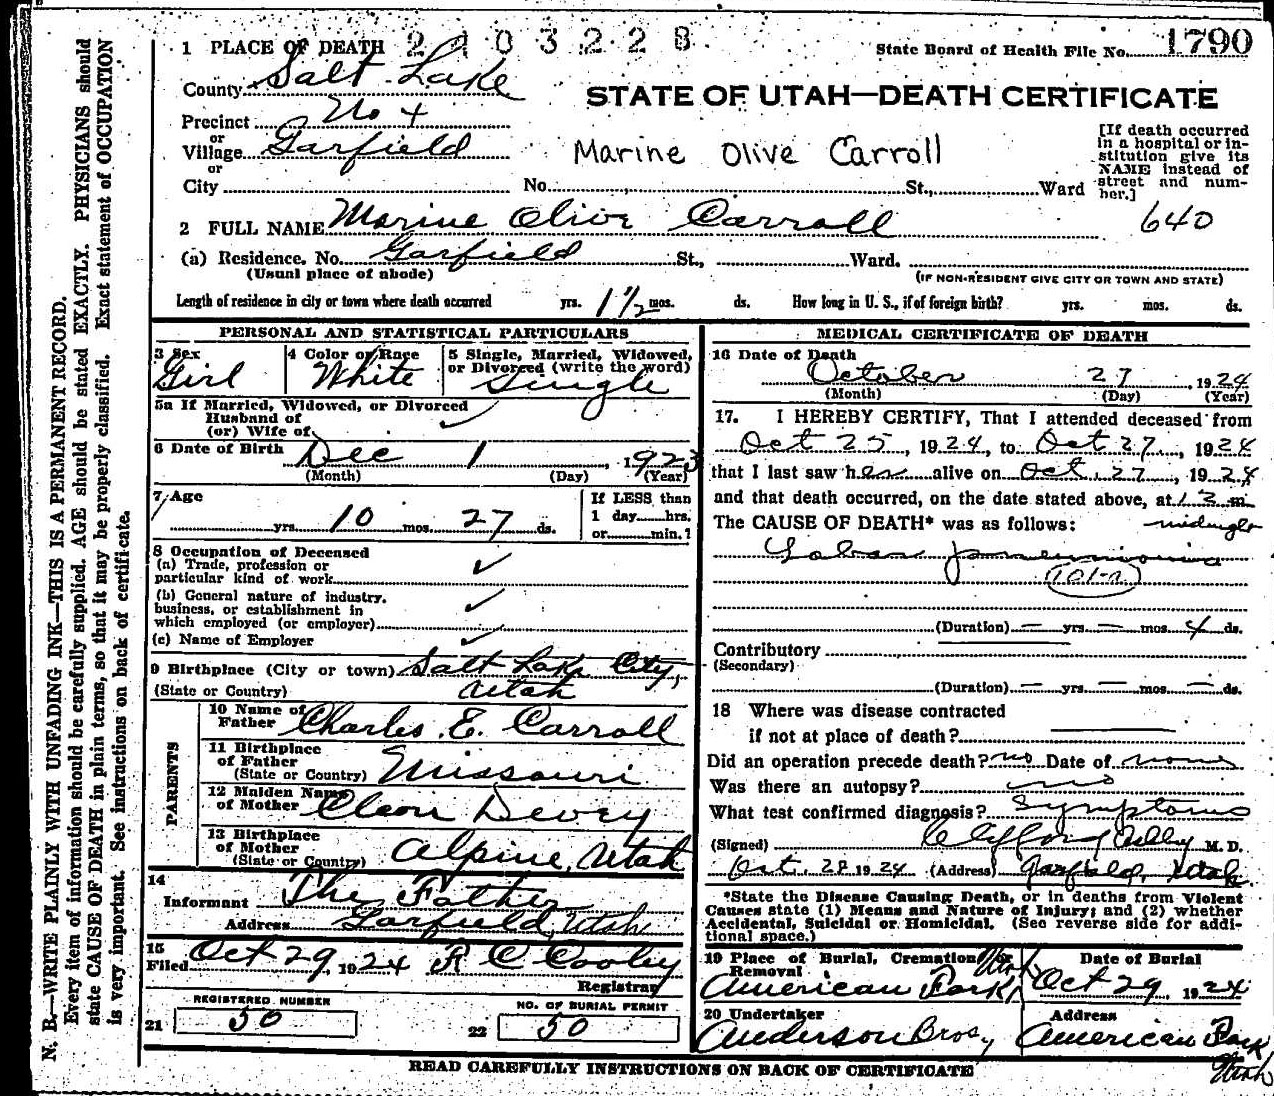 1 PLACE OF DEATH 2103228
State Board of Health File No. 1790
County Salt Lake
STATE OF UTAH—DEATH CERTIFICATE
Precinct No 4
or
Village Garfield
or
City No. St., Ward
Marine Olive Carroll
[If death occurred
in a hospital or in-
stitution give its
NAME instead of
street and num-
ber.]
640
2 FULL NAME Marine Olive Carroll
(a) Residence. No. Garfield St., Ward.
(Usual place of abode)
(IF NON-RESIDENT GIVE CITY OR TOWN AND STATE)
Length of residence in city or town where death occurred yrs. 1 1/2 mos. ds. How long in U. S., if of foreign birth? yrs. mos. ds.
PERSONAL AND STATISTICAL PARTICULARS
3 Sex
Girl
4 Color or Race
White
5 Single, Married, Widowed,
or Divorced (write the word)
Single
5a If Married, Widowed, or Divorced
Husband of
(or) Wife of
6 Date of Birth Dec 1, 1923
(Month) (Day) (Year)
7 Age
yrs. 10 mos. 27 ds.
If LESS than
1 day hrs.
or min.?
8 Occupation of Deceased
(a) Trade, profession or
particular kind of work
(b) General nature of industry,
business, or establishment in
which employed (or employer)
(c) Name of Employer
9 Birthplace (City or town) Salt Lake City,
(State or Country) Utah
PARENTS
10 Name of
Father Charles E. Carroll
11 Birthplace
of Father
(State or Country) Missouri
12 Maiden Name
of Mother Cleon Devey
13 Birthplace
of Mother
(State or Country) Alpine, Utah
14
Informant The Father
Address Garfield, Utah
15
Filed Oct 29, 1924 R C Cooley
Registrar
REGISTERED NUMBER
21 50
NO. OF BURIAL PERMIT
22 50
MEDICAL CERTIFICATE OF DEATH
16 Date of Death
October 27, 1924
(Month) (Day) (Year)
17. I HEREBY CERTIFY, That I attended deceased from
Oct 25, 1924, to Oct 27, 1924
that I last saw her alive on Oct. 27, 1924
and that death occurred, on the date stated above, at m.
The CAUSE OF DEATH* was as follows: midnight
Lobar pneumonia
101-a
(Duration) — yrs. — mos. 4 ds.
Contributory
(Secondary)
(Duration) — yrs. — mos. — ds.
18 Where was disease contracted
if not at place of death?
Did an operation precede death? no Date of none
Was there an autopsy? no
What test confirmed diagnosis? Symptoms
(Signed) Clifford M. D.
Oct. 28 1924 (Address) Garfield, Utah.
*State the Disease Causing Death, or in deaths from Violent
Causes state (1) Means and Nature of Injury; and (2) whether
Accidental, Suicidal or Homicidal. (See reverse side for addi-
tional space.)
19 Place of Burial, Cremation or
Removal
American Fork, Utah
Date of Burial
Oct 29, 1924
20 Undertaker
Anderson Bros,
Address
American Fork
Utah
READ CAREFULLY INSTRUCTIONS ON BACK OF CERTIFICATE
N. B.—WRITE PLAINLY WITH UNFADING INK—THIS IS A PERMANENT RECORD.
Every item of information should be carefully supplied. AGE should be stated EXACTLY. PHYSICIANS should
state CAUSE OF DEATH in plain terms, so that it may be properly classified. Exact statement of OCCUPATION
is very important. See instructions on back of certificate.